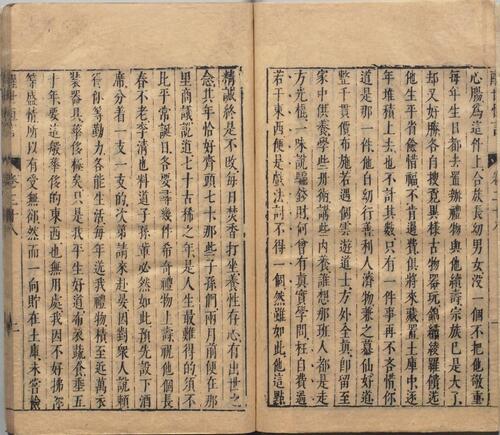 心腸為這件上合族長幼男女沒一個不把他敬重
每年生日都去置辦禮物與他續壽宗族已是大了
却又好勝各自搜覓異樣古物器玩錦繡綾羅饋送
他生平省儉惜福不肯過費俱將來藏置土庫中逐
年堆積上去也不計其數只有一件事再不吝惜你
道是那一件他自幼行善利人濟物兼之慕仙好道
整千貫價布施若遇個雲遊道士方外全真卽留至
家中供養學些丹術講些内養誰想那班人都是走
方光棍一味說騙錢財何曾有真實學問枉自費過
若干東西便是戲法討不得一個然雖如此他這點
精誠終是不改每日焚香打坐養性存心有出世之
念其年恰好齊頭七十那些子孫們兩月前便在那
里商議說道七十古稀之年是人生最難得的須不
比平常誕日各要尋幾件希奇禮物上壽祝他個長
春不老李清也料道子孫輩必然如此預先設下酒
席分着一支一支的次第請來赴宴因對衆人說頼
得你等勤力各能生活每年送我禮物積至近萬衣
裝器具華侈極矣只是我平生好道布衣蔬食垂五
十年要這般華侈的東西也無用處我因不好拂你
等盛情所以有受無卻然而一向貯在土庫未嘗檢
卷三十八
二